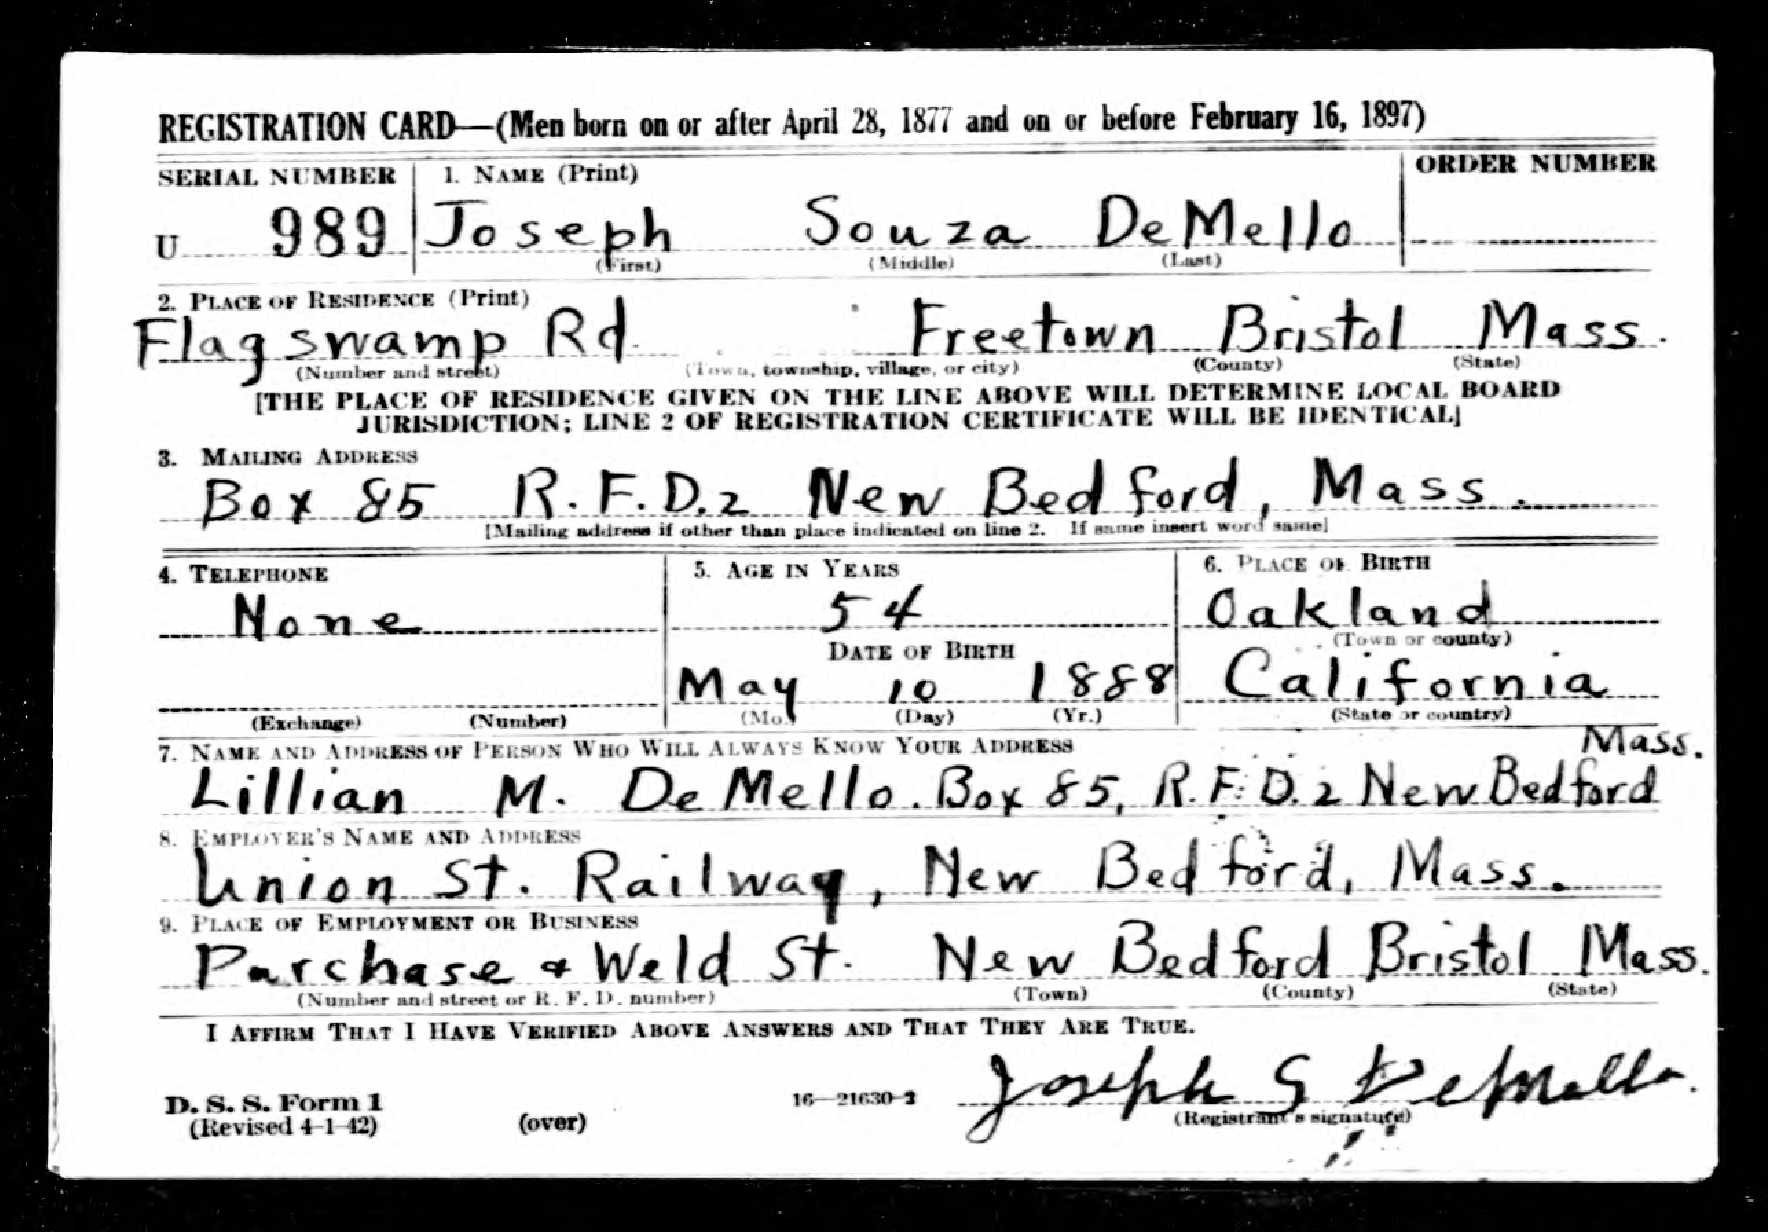 REGISTRATION CARD—(Men born on or after April 28, 1877 and on or before February 16, 1897)
SERIAL NUMBER 1. NAME (Print) ORDER NUMBER
U 989 Joseph Souza DeMello
(First) (Middle) (Last)
2. PLACE OF RESIDENCE (Print)
Flagswamp Rd Freetown Bristol Mass.
(Number and street) (Town, township, village, or city) (County) (State)
[THE PLACE OF RESIDENCE GIVEN ON THE LINE ABOVE WILL DETERMINE LOCAL BOARD
JURISDICTION; LINE 2 OF REGISTRATION CERTIFICATE WILL BE IDENTICAL]
3. MAILING ADDRESS
Box 85 R.F.D.2 New Bedford, Mass.
[Mailing address if other than place indicated on line 2. If same insert word same]
4. TELEPHONE 5. AGE IN YEARS 6. PLACE OF BIRTH
None 54 Oakland
DATE OF BIRTH (Town or county)
May 10 1888 California
(Exchange) (Number) (Mo.) (Day) (Yr.) (State or country)
7. NAME AND ADDRESS OF PERSON WHO WILL ALWAYS KNOW YOUR ADDRESS Mass.
Lillian M. DeMello. Box 85, R.F.D.2 New Bedford
8. EMPLOYER'S NAME AND ADDRESS
Union St. Railway, New Bedford, Mass.
9. PLACE OF EMPLOYMENT OR BUSINESS
Purchase & Weld St. New Bedford Bristol Mass.
(Number and street or R. F. D. number) (Town) (County) (State)
I AFFIRM THAT I HAVE VERIFIED ABOVE ANSWERS AND THAT THEY ARE TRUE.
Joseph S DeMello.
D. S. S. Form 1 16—21630-2 (Registrant's signature)
(Revised 4-1-42) (over)